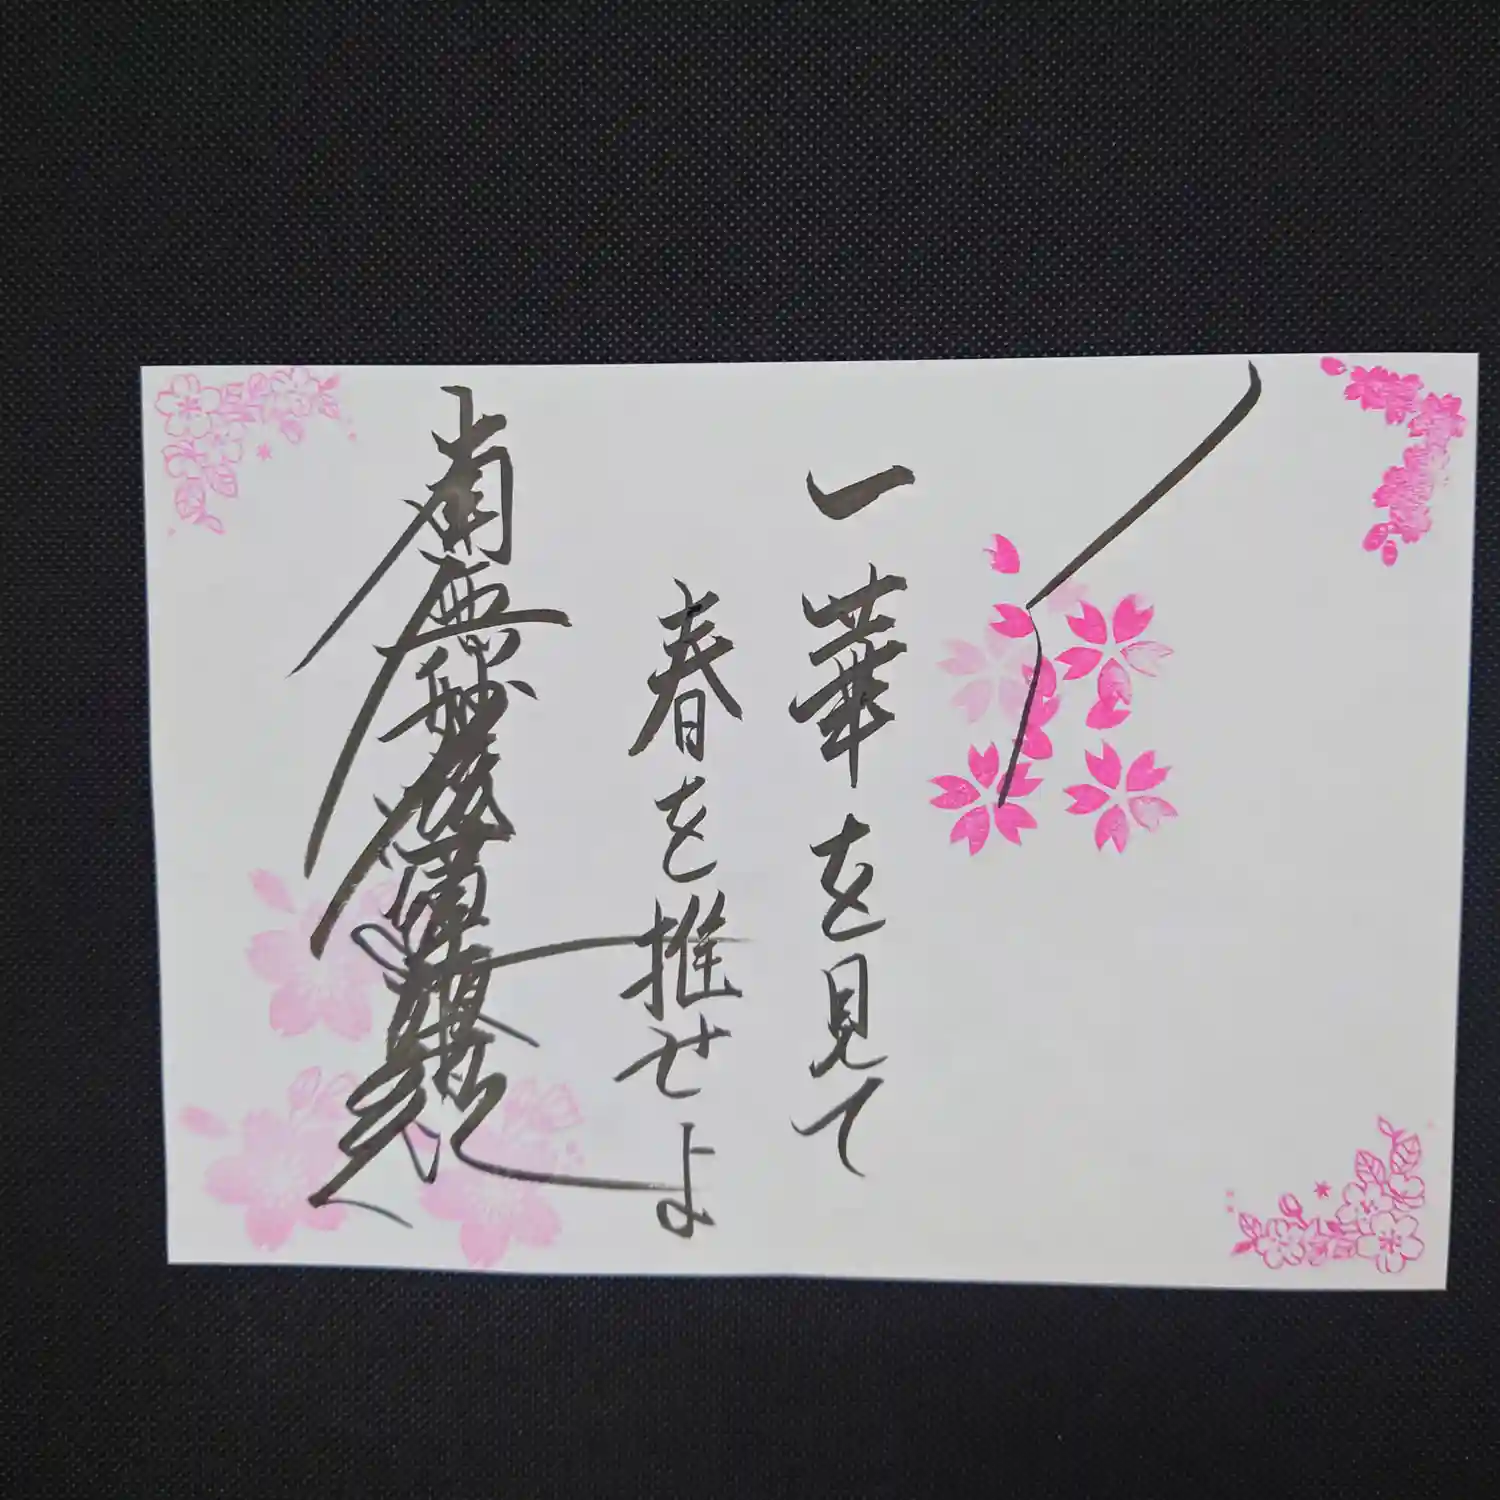 一華を見て
春を推せよ
南無妙法蓮華経